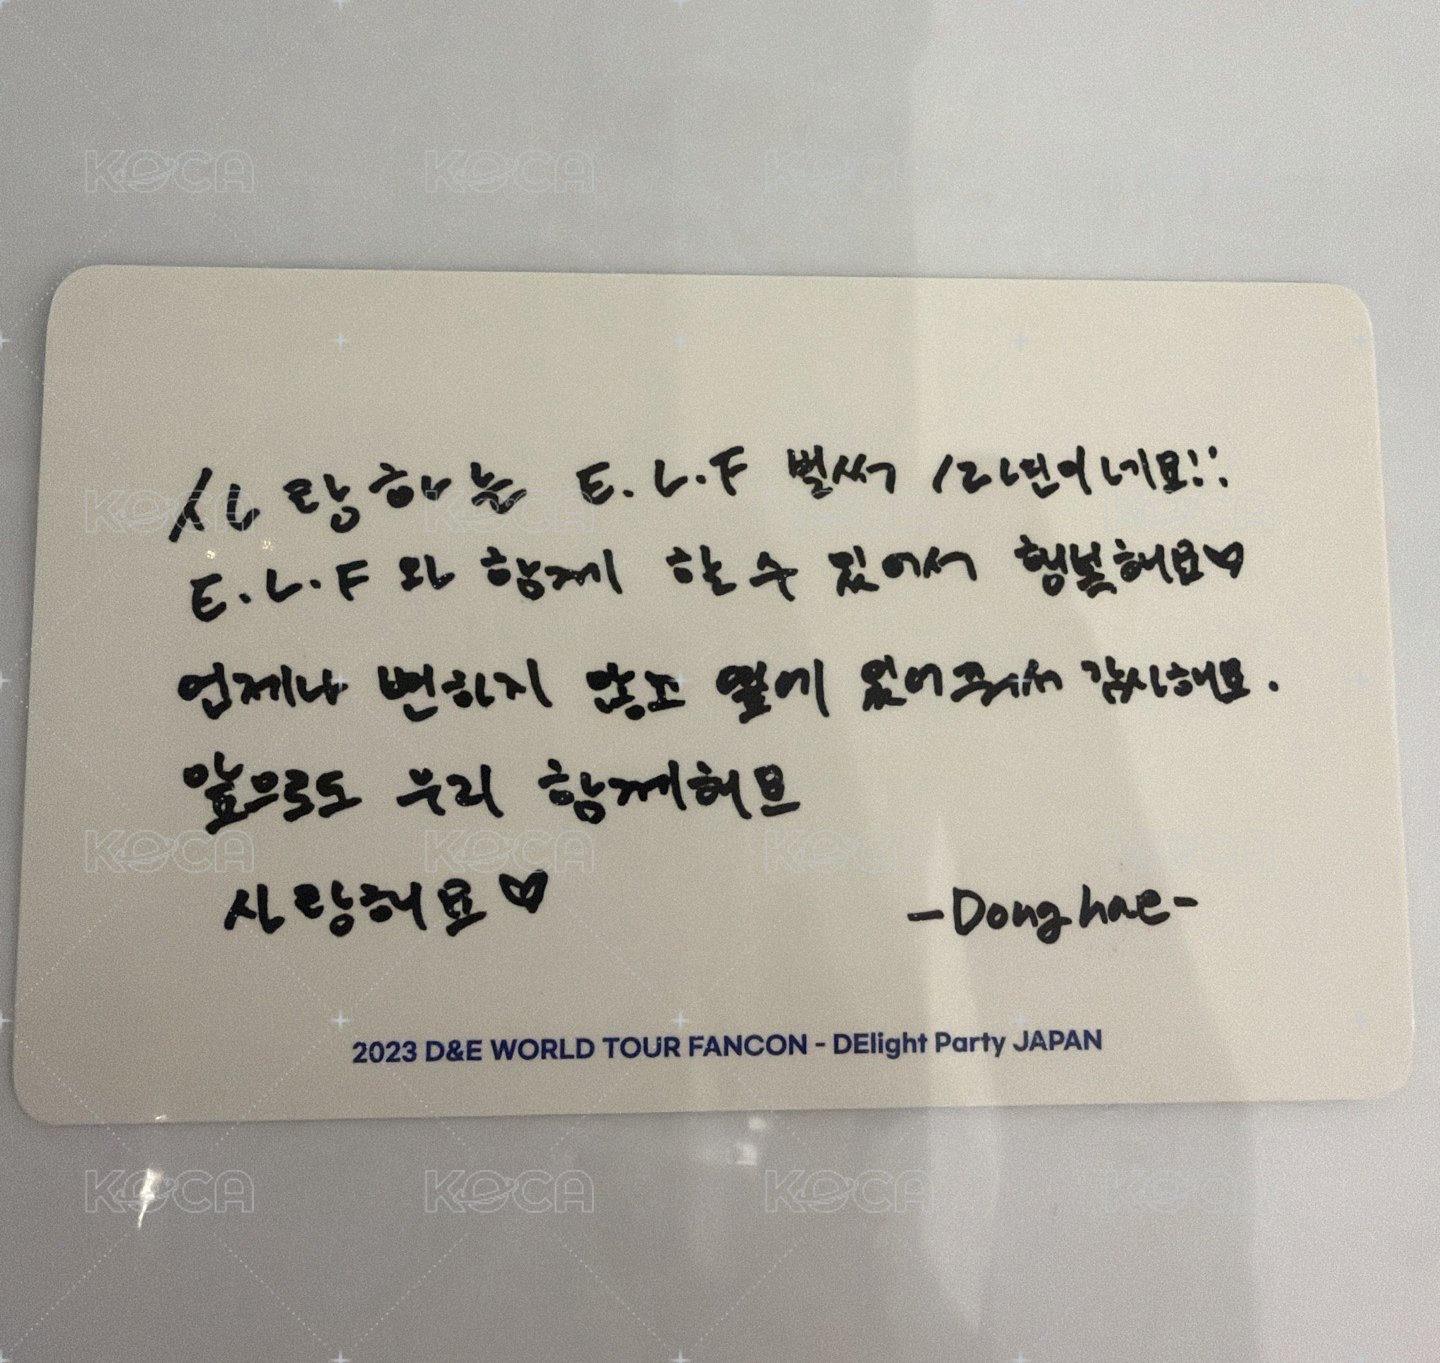 사랑하는 E.L.F 벌써 12년이네요!!
E.L.F 와 함께 할 수 있어서 행복해요♡
언제나 변하지 않고 옆에 있어주셔서 감사해요.
앞으로도 우리 함께해요
사랑해요♡
-Donghae-
2023 D&E WORLD TOUR FANCON - DElight Party JAPAN